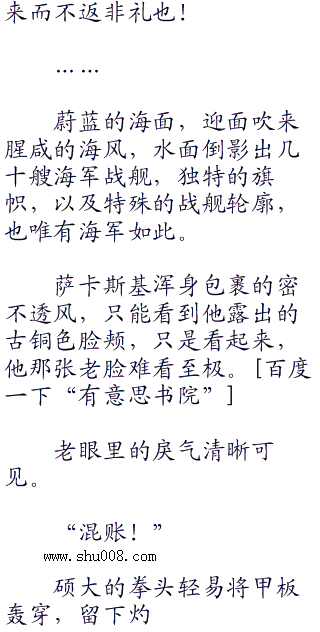 来而不返非礼也！
……
蔚蓝的海面，迎面吹来
腥咸的海风，水面倒影出几
十艘海军战舰，独特的旗
帜，以及特殊的战舰轮廓，
也唯有海军如此。
萨卡斯基浑身包裹的密
不透风，只能看到他露出的
古铜色脸颊，只是看起来，
他那张老脸难看至极。[百度
一下“有意思书院”]
老眼里的戾气清晰可
见。
“混账！”
www.shu008.com
硕大的拳头轻易将甲板
轰穿，留下灼